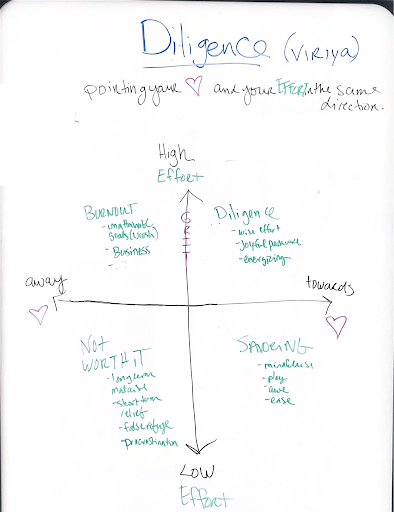 Diligence (VIRIYA)
pointing your and your EFFORT in the same
direction.
High
Effort
BURNOUT
- unattainable
goals (work)
- Business
GRIT
Diligence
- wise effort
- joyful
- energizing
away
towards
Not
WORTH IT
- long term
malaise
- short term
relief
- false refuge
- procrastination
SAVORING
- mindfulness
- play
- awe
- ease
LOW
Effort